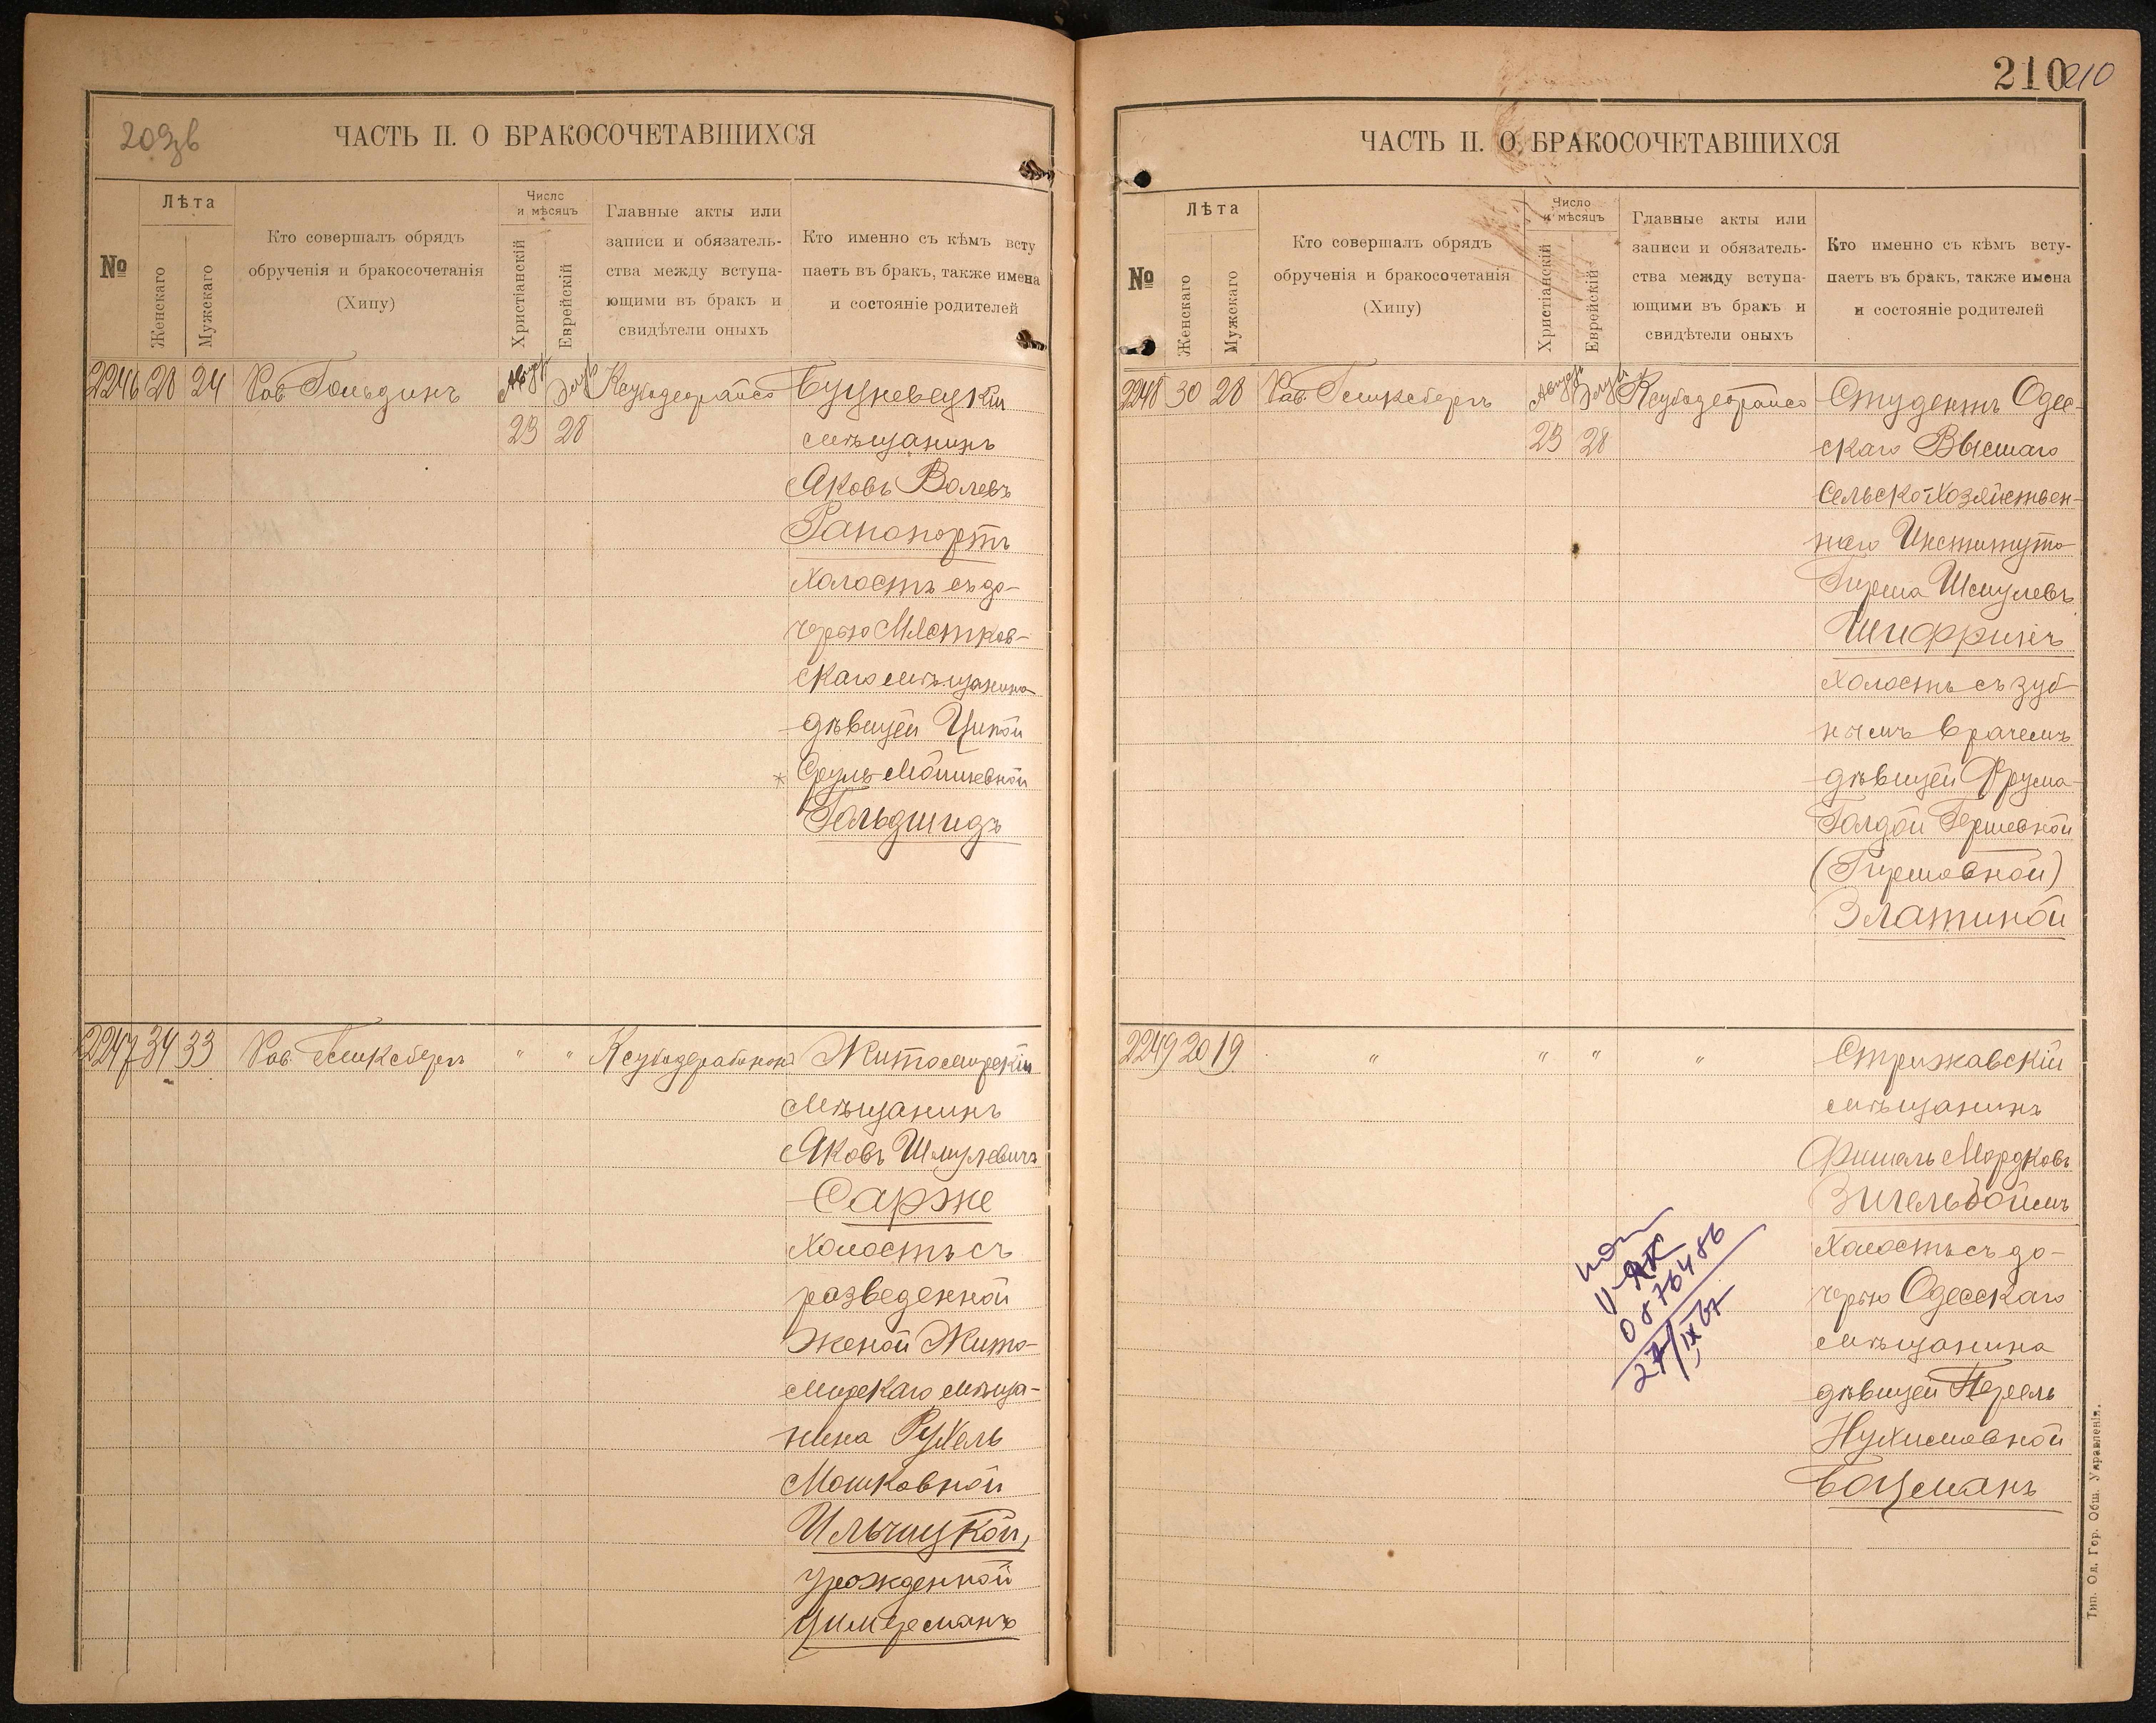 209зв
ЧАСТЬ II. О БРАКОСОЧЕТАВШИХСЯ
№
Лѣта
Женскаго
Мужскаго
Кто совершалъ обрядъ
обрученія и бракосочетанія
(Хипу)
Число
и мѣсяцъ
Христіанскій
Еврейскій
Главные акты или
записи и обязатель-
ства между вступа-
ющими въ бракъ и
свидѣтели оныхъ
Кто именно съ кѣмъ всту
паетъ въ бракъ, также имена
и состояніе родителей
2246 28 24 Рав. Гольдинъ Август Элул
23 28
мѣщанинъ
Яковъ Волевъ
Рапопортъ
холостъ съ до-
черью
скаго мѣщанина
дѣвицей Ципой
Сруль-Мошковной
Гольдшмидъ
2247 34 33 Рав. " "
Житомирскій
мѣщанинъ
Яковъ Шмулевичъ
Сарже
холостъ съ
разведенной
женой Жито-
мирскаго мѣща-
нина Рухель
Мошковной
Ильчицкой,
урожденной
Цимерманъ
210 210
ЧАСТЬ II. О БРАКОСОЧЕТАВШИХСЯ
№
Лѣта
Женскаго
Мужскаго
Кто совершалъ обрядъ
обрученія и бракосочетанія
(Хипу)
Число
и мѣсяцъ
Христіанскій
Еврейскій
Главные акты или
записи и обязатель-
ства между вступа-
ющими въ бракъ и
свидѣтели оныхъ
Кто именно съ кѣмъ всту-
паетъ въ бракъ, также имена
и состояніе родителей
2248 30 28 Рав. Август Элул Студентъ Одес-
23 28 скаго Высшаго
Сельско-Хозяйствен-
наго Института
Гирша Шмулевъ
Шифринъ
холостъ съ зуб-
нымъ врачемъ
дѣвицей Фрума-
Голдой Гершевной
(Гиршовной)
Златиной
2249 20 19 " " " " Стрижавскій
мѣщанинъ
Фишель Мордковъ
Зигельбоймъ
холостъ съ до-
черью Одесскаго
мѣщанина
дѣвицей Перель
Нухимовной
Боцманъ
0576486
27/IX 67
Тип. Од. Гор. Общ. Управленія.